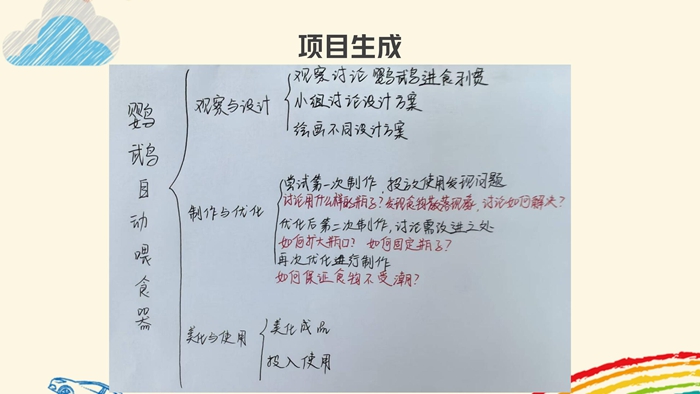 项目生成
鹦鹉自动喂食器
观察与设计
观察讨论鹦鹉进食习惯
小组讨论设计方案
绘画不同设计方案
制作与优化
尝试第一次制作,投放使用发现问题
讨论用什么样的瓶子?发现食物散落现象,讨论如何解决?
优化后第二次制作,讨论需改进之处
如何扩大瓶口? 如何固定瓶子?
再次优化进行制作
如何保证食物不受潮?
美化与使用
美化成品
投入使用